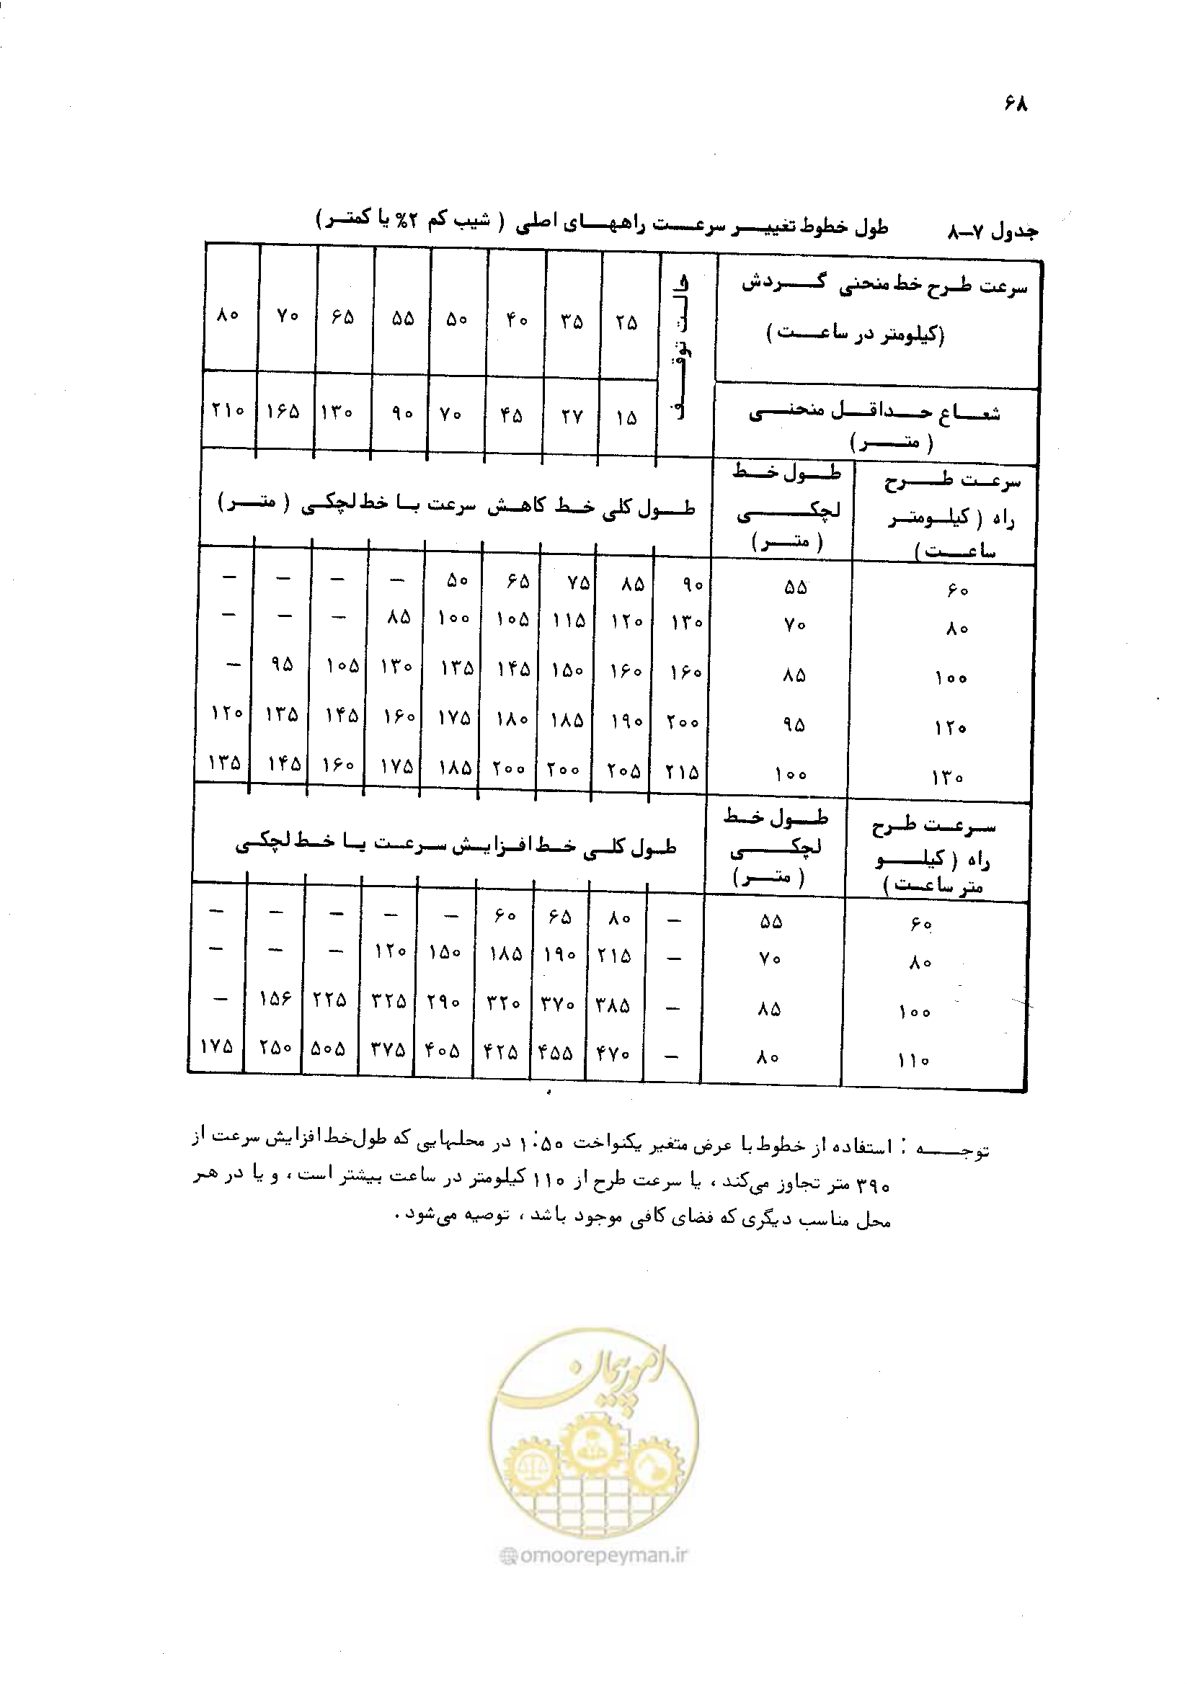 ۶۸
جدول ۷-۸ طول خطوط تغییر سرعت راههای اصلی ( شیب کم ۲% یا کمتر)
سرعت طرح خط منحنی گردش (کیلومتر در ساعت) حالت توقف ۲۵ ۳۵ ۴۰ ۵۰ ۵۵ ۶۵ ۷۰ ۸۰
شعاع حداقل منحنی ( متر) ۱۵ ۲۷ ۴۵ ۷۰ ۹۰ ۱۳۰ ۱۶۵ ۲۱۰
سرعت طرح راه ( کیلومتر ساعت) طول خط لچکی ( متر) طول کلی خط کاهش سرعت با خط لچکی ( متر)
۶۰ ۵۵ ۹۰ ۸۵ ۷۵ ۶۵ ۵۰ – – – –
۸۰ ۷۰ ۱۳۰ ۱۲۰ ۱۱۵ ۱۰۵ ۱۰۰ ۸۵ – – –
۱۰۰ ۸۵ ۱۶۰ ۱۶۰ ۱۵۰ ۱۴۵ ۱۳۵ ۱۳۰ ۱۰۵ ۹۵ –
۱۲۰ ۹۵ ۲۰۰ ۱۹۰ ۱۸۵ ۱۸۰ ۱۷۵ ۱۶۰ ۱۴۵ ۱۳۵ ۱۲۰
۱۳۰ ۱۰۰ ۲۱۵ ۲۰۵ ۲۰۰ ۲۰۰ ۱۸۵ ۱۷۵ ۱۶۰ ۱۴۵ ۱۳۵
سرعت طرح راه ( کیلو متر ساعت) طول خط لچکی ( متر) طول کلی خط افزایش سرعت با خط لچکی
۶۰ ۵۵ – ۸۰ ۶۵ ۶۰ – – – – –
۸۰ ۷۰ – ۲۱۵ ۱۹۰ ۱۸۵ ۱۵۰ ۱۲۰ – – –
۱۰۰ ۸۵ – ۳۸۵ ۳۷۰ ۳۲۰ ۲۹۰ ۳۲۵ ۲۲۵ ۱۵۶ –
۱۱۰ ۸۰ – ۴۷۰ ۴۵۵ ۴۲۵ ۴۰۵ ۳۷۵ ۵۰۵ ۲۵۰ ۱۷۵
توجه : استفاده از خطوط با عرض متغیر یکنواخت ۱:۵۰ در محلهایی که طول خط افزایش سرعت از
۳۹۰ متر تجاوز می‌کند ، یا سرعت طرح از ۱۱۰ کیلومتر در ساعت بیشتر است ، و یا در هر
محل مناسب دیگری که فضای کافی موجود باشد ، توصیه می‌شود .
امور پیمان
@omoorepeyman.ir